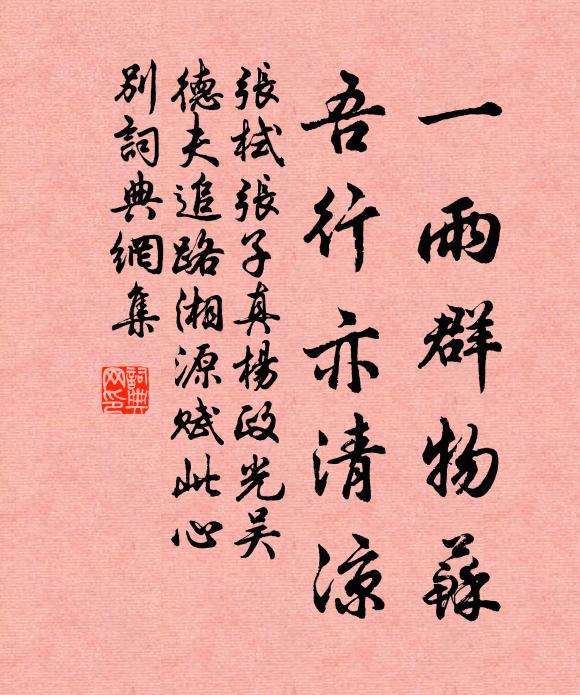 一雨群物蘇
吾行亦清涼
張栻張子真楊政光吴
德夫追路湘源賦此心
別詞典網集
詞典
网印